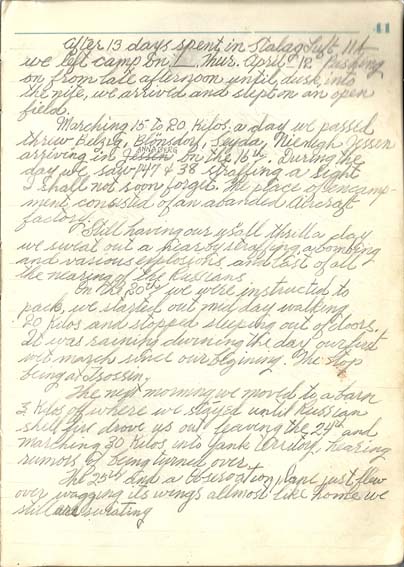 41
After 13 days spent in Stalag Luft 11A
we left camp on Thur. April 12 Pushing
on from late afternoon until dusk, into
the nite, we arrived and slept on an open
field.
Marching 15 to 20 Kilos, a day we passed
threw Belzig, Blonsdorf, Seyda, Nienegh Jessen
ANNABERG
arriving in Jessen on the 16th. During the
day we saw P47 & 38 straffing a sight
I shall not soon forget. The place of encamp-
ment consisted of an abanded Aircraft
factory.
Still having our usall thrill a day
we sweat out a nearby straffing, a bombing
and various explosions and last of all
the nearing of the Russians.
On the 20th we were instructed to
pack, we started out mid day walking
20 Kilos and stopped sleeping out of doors.
It was raining durning the day our first
wet march since our begining. The stop
being at
The next morning we moved to a barn
3 Kilos off where we stayed until Russian
shell fire drove us out leaving the 24th and
marching 30 Kilos into Yank Territory, hearing
rumors of being turned over.
The 25th and a observation plane just flew
over wagging its wings allmost like home we
still are sweating